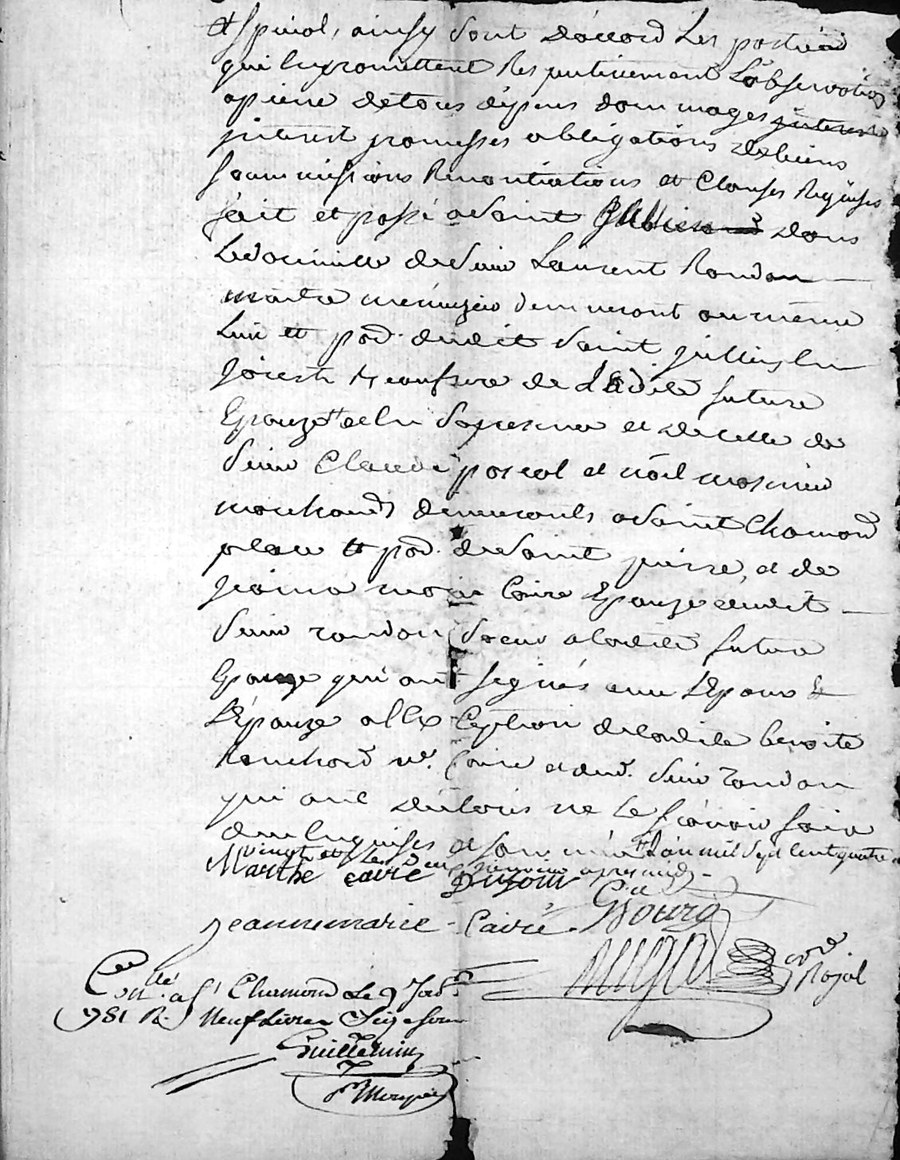 et spécial, ainsy sont d'accord Les parties
qui en promettent Respectivement L'observation
a peine de tous dépens dommages interest
interest promesses obligations de biens
soumissions Renontiations et Clauses Requises
fait et passé a Saint dans
Le domicille de Sieur Laurent Rondon
maitre menuzier demeurant au même
Lieu et pad. dudit Saint Jullien en
Jarest Beaufrere de Ladite future
Epouze et en sa presence et de celle de
Sieur Claude pascal et noël
marchands demeurants a Saint Chamond
place et pad. de Saint pierre, et de
Jeanne marie Coire Epouze dudit
Sieur rondon Soeur a ladite future
Epouze qui ont signés avec L'Epoux &
L'Epouze a l'Exception de ladite benoite
ve. Coire et dud. Sieur rondon
qui ont déclarés ne le sçavoir faire
de ce enquises et sommés L'an mil Sept Cent quatre
vingt et Le apres midy
Marthe Caire Dugour
Jeanne marie Caire Gbourg
Royal
Con.llé a St Chamond Le 9 Jer
1781 R. Neuf Livres Seize sous
Guillemin